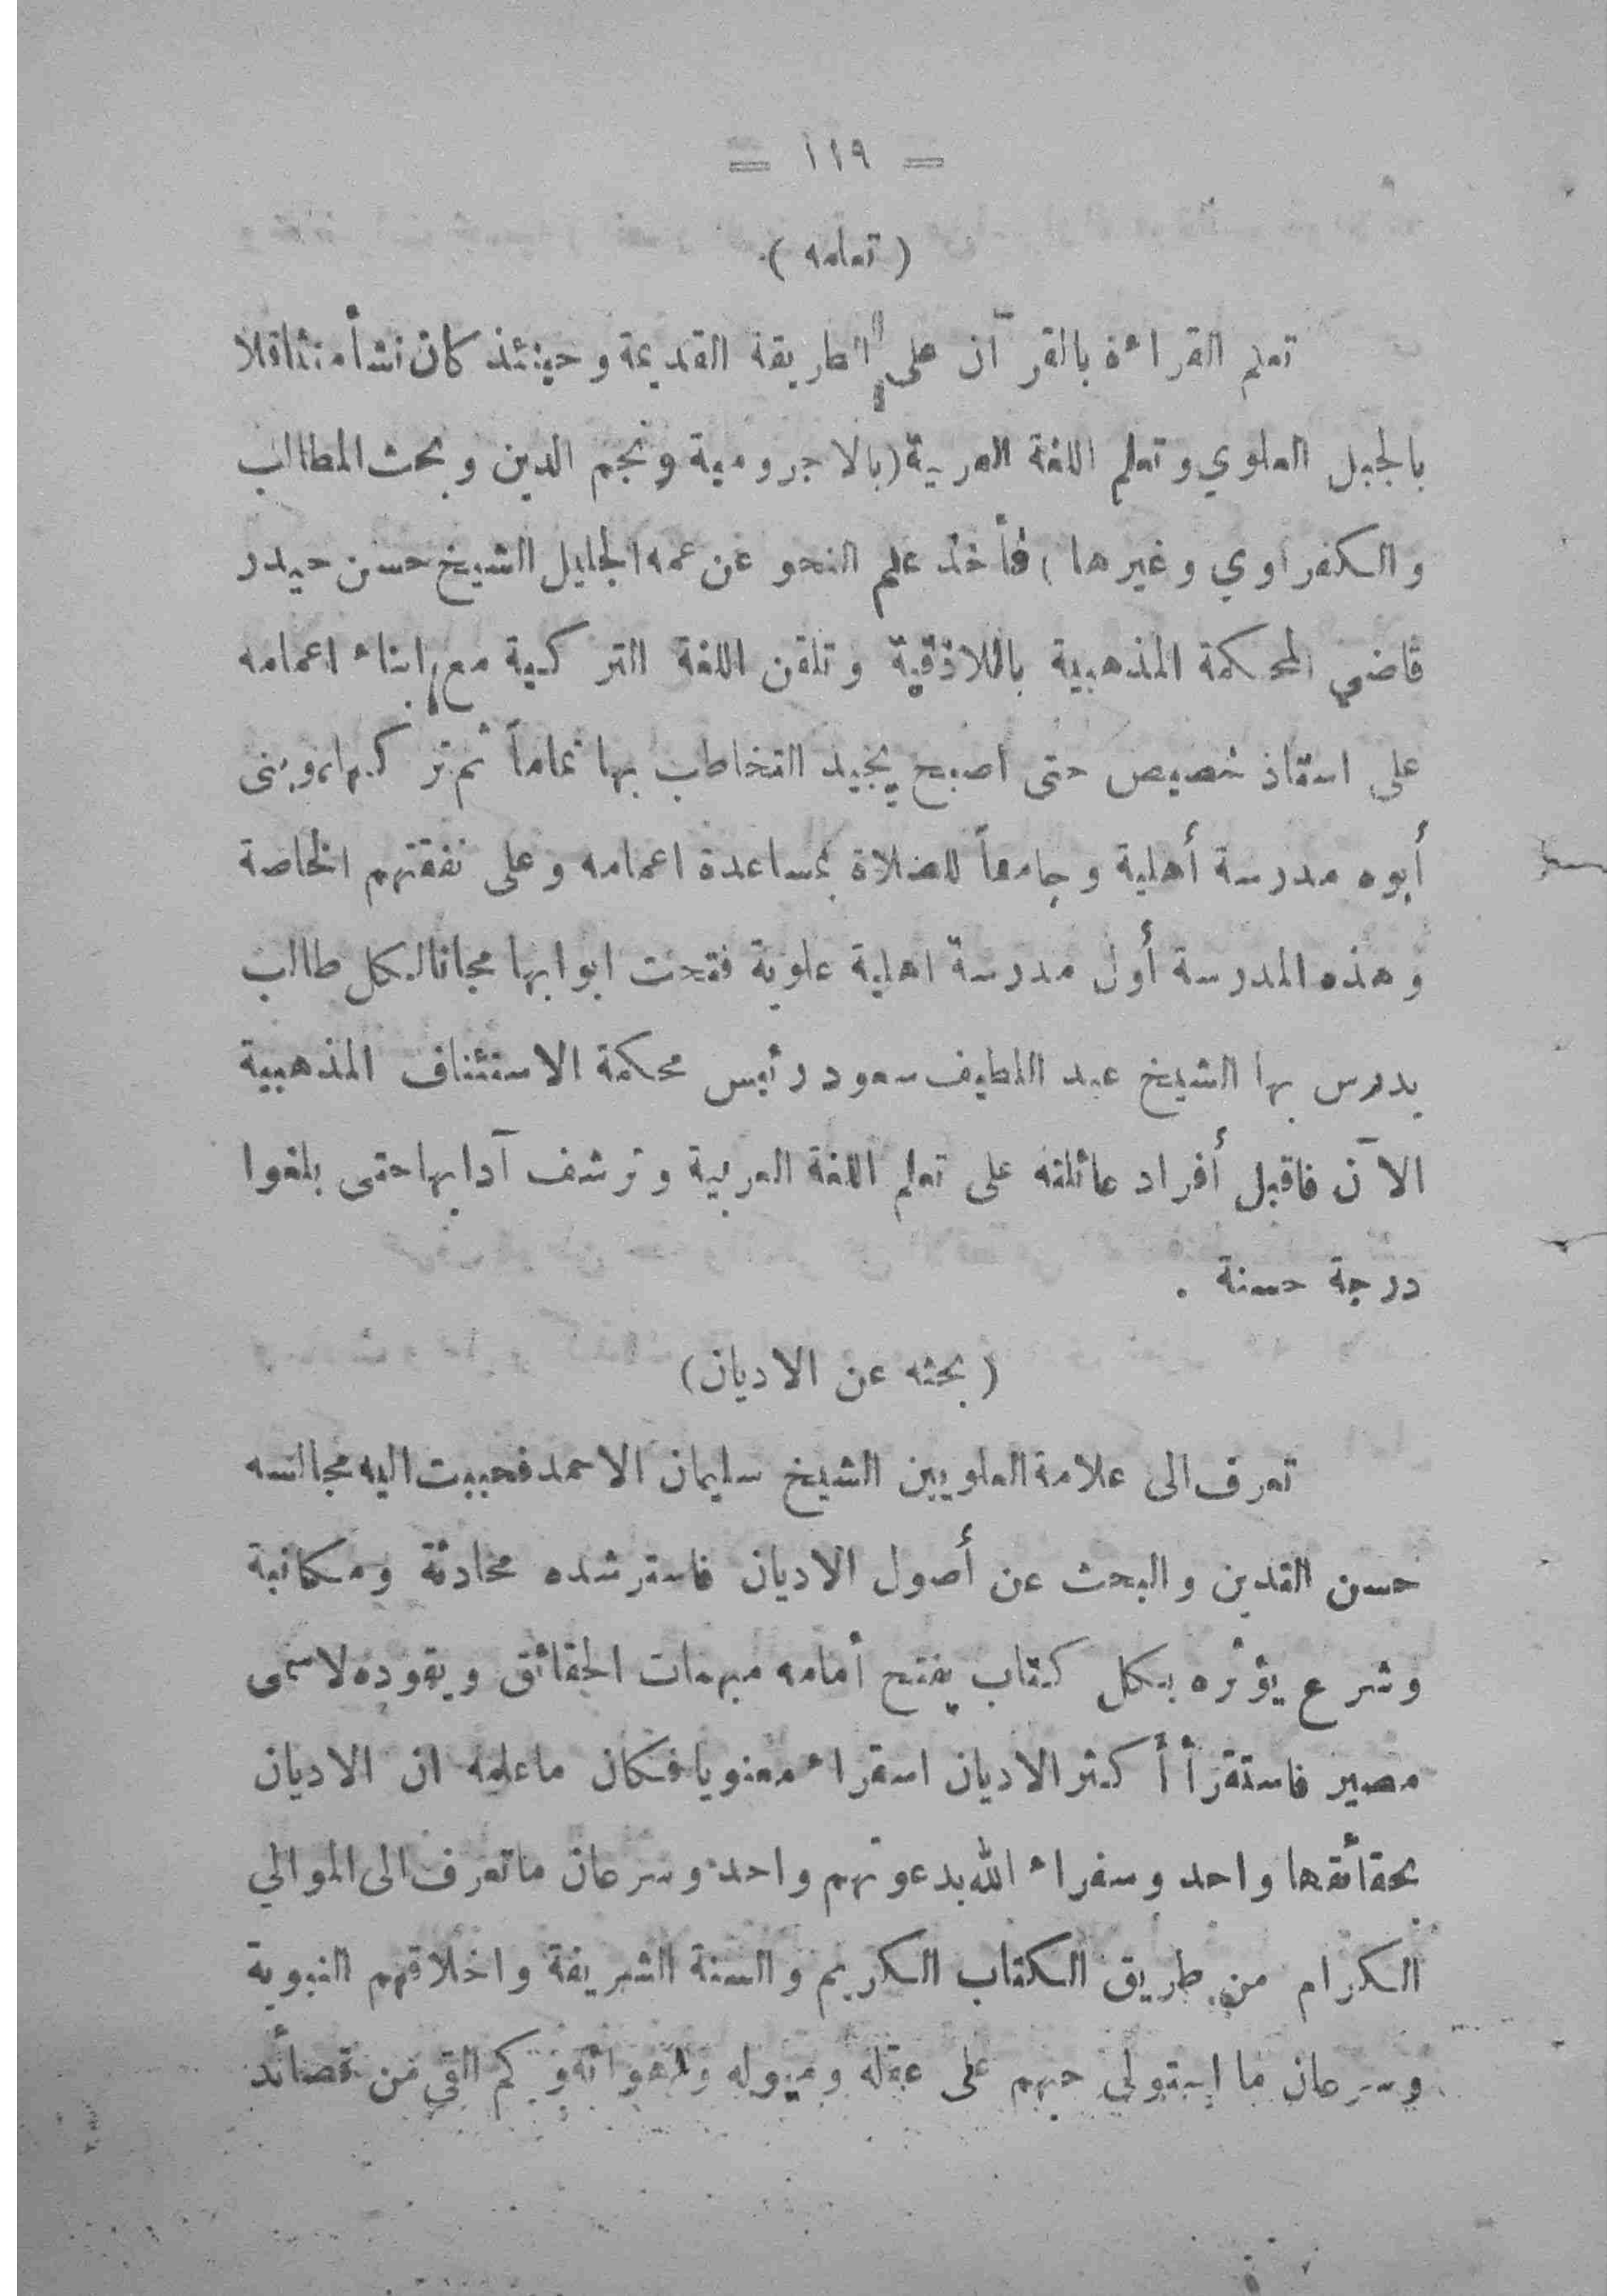 = ١١٩ =
( تعلمه )
تعلم القراءة بالقرآن على الطريقة القديمة وحينئذ كان نشأ متثاقلا
بالجبل العلوي وتعلم اللغة العربية ( بالاجرومية ونجم الدين وبحث المطالب
والكفراوي وغيرها ) فأخذ علم النحو عن عمه الجليل الشيخ حسن حيدر
قاضي المحكمة المذهبية باللاذقية وتلقن اللغة التركية مع ابناء اعمامه
على استاذ خصيص حتى اصبح يجيد التخاطب بها تماماً ثم تركها، وبنى
أبوه مدرسة أهلية وجامعاً للصلاة بمساعدة اعمامه وعلى نفقتهم الخاصة
وهذه المدرسة أول مدرسة اهلية علوية فتحت ابوابها مجانا لكل طالب
يدرس بها الشيخ عبد اللطيف سعود رئيس محكمة الاستئناف المذهبية
الآن فاقبل أفراد عائلته على تعلم اللغة العربية وترشف آدابها حتى بلغوا
درجة حسنة .
( بحثه عن الاديان )
تعرف الى علامة العلويين الشيخ سليمان الاحمد فحببت اليه مجالسه
حسن التدين والبحث عن أصول الاديان فاسترشده محادثة ومكاتبة
وشرع يؤثره بكل كتاب يفتح أمامه مبهمات الحقائق ويقوده لاسمى
مصير فاستقرأ أكثر الاديان استقراء معنويا فكان ما علمه ان الاديان
بحقائقها واحد وسفراء الله بدعوتهم واحد وسرعان ما تعرف الى الموالي
الكرام من طريق الكتاب الكريم والسنة الشريفة واخلاقهم النبوية
وسرعان ما استولى حبهم على عقله وميوله واهوائه وكم القى من قصائد